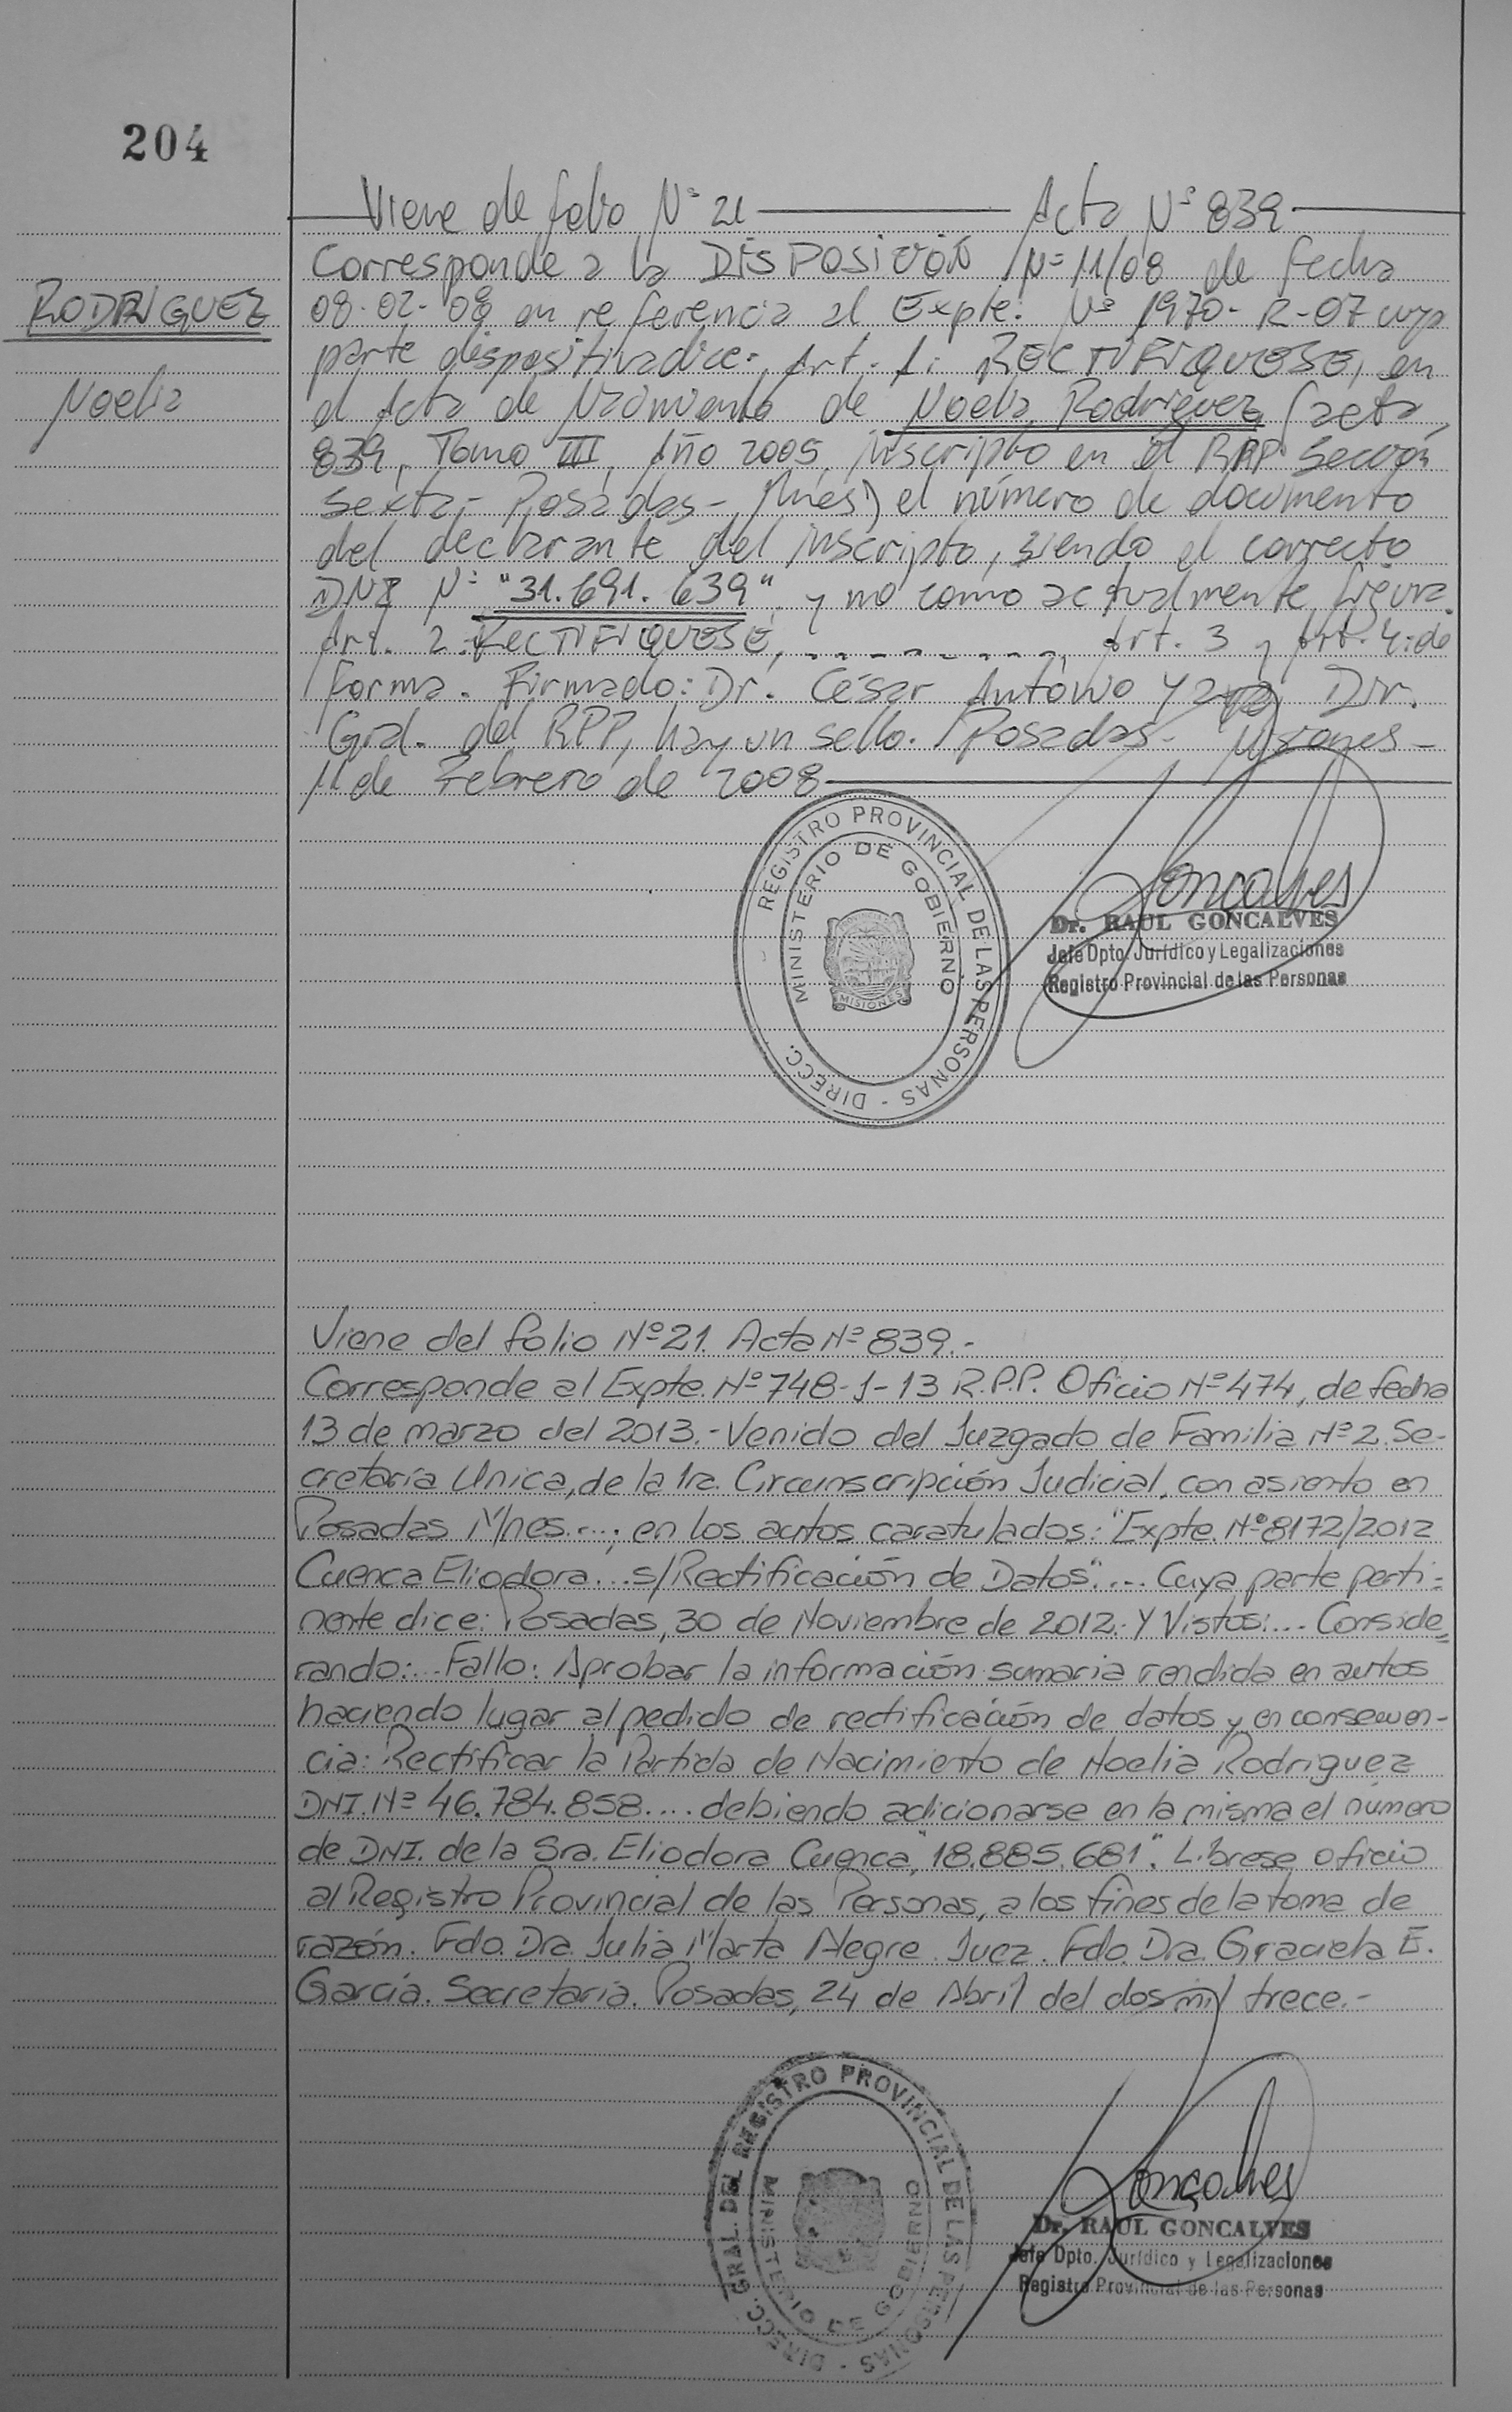 204
Viene de folio Nº 21 Acta Nº 839
Corresponde a la DISPOSICIÓN Nº 11/08 de fecha
RODRIGUEZ
08-02-08 en referencia al Expte. Nº 1970-R-07 cuya
parte dispositiva dice: Art. 1: RECTIFIQUESE, en
Noelia
el Acta de Nacimiento de Noelia Rodriguez (acta
839, Tomo III, Año 2005, inscripto en el RPP Sección
Sexta,- Posadas-, Mnes) el número de documento
del declarante del inscripto, siendo el correcto
DNI Nº "31.691.639", y no como actualmente figura.
Art. 2: RECTIFIQUESE, - - - - - - - - -, Art. 3 y Art. 4: de
forma. Firmado: Dr. César Antonio Dir.
Gral. del RPP, hay un sello. Posadas- Misiones-
11 de Febrero de 2008
REGISTRO PROVINCIAL DE LAS PERSONAS - DIRECC.
MINISTERIO DE GOBIERNO
MISIONES
Goncalves
Dr. RAUL GONCALVES
Jefe Dpto. Jurídico y Legalizaciones
Registro Provincial de las Personas
Viene del folio Nº 21. Acta Nº 839.-
Corresponde al Expte. Nº 748-J-13 R.P.P. Oficio Nº 474, de fecha
13 de marzo del 2013.- Venido del Juzgado de Familia Nº 2. Se-
cretaría Unica, de la 1ra. Circunscripción Judicial, con asiento en
Posadas M/nes....; en los autos caratulados: "Expte. Nº 8172/2012
Cuenca Eliodora... s/Rectificación de Datos".... Cuya parte perti-
nente dice: Posadas, 30 de Noviembre de 2012.- Y Vistos:.... Conside-
rando:... Fallo: Aprobar la información sumaria rendida en autos
haciendo lugar al pedido de rectificación de datos y en consecuen-
cia: Rectificar la Partida de Nacimiento de Noelia Rodriguez
DNI. Nº 46.784.858.... debiendo adicionarse en la misma el número
de DNI. de la Sra. Eliodora Cuenca, "18.885.681". Librese oficio
al Registro Provincial de las Personas, a los fines de la toma de
razón. Fdo. Dra. Julia Marta Alegre. Juez. Fdo. Dra. Graciela E.
García. Secretaria. Posadas, 24 de Abril del dos mil trece.-
DIRECC. GRAL. DEL REGISTRO PROVINCIAL DE LAS PERSONAS -
MINISTERIO DE GOBIERNO
Goncalves
Dr. RAUL GONCALVES
Jefe Dpto. Jurídico y Legalizaciones
Registro Provincial de las Personas